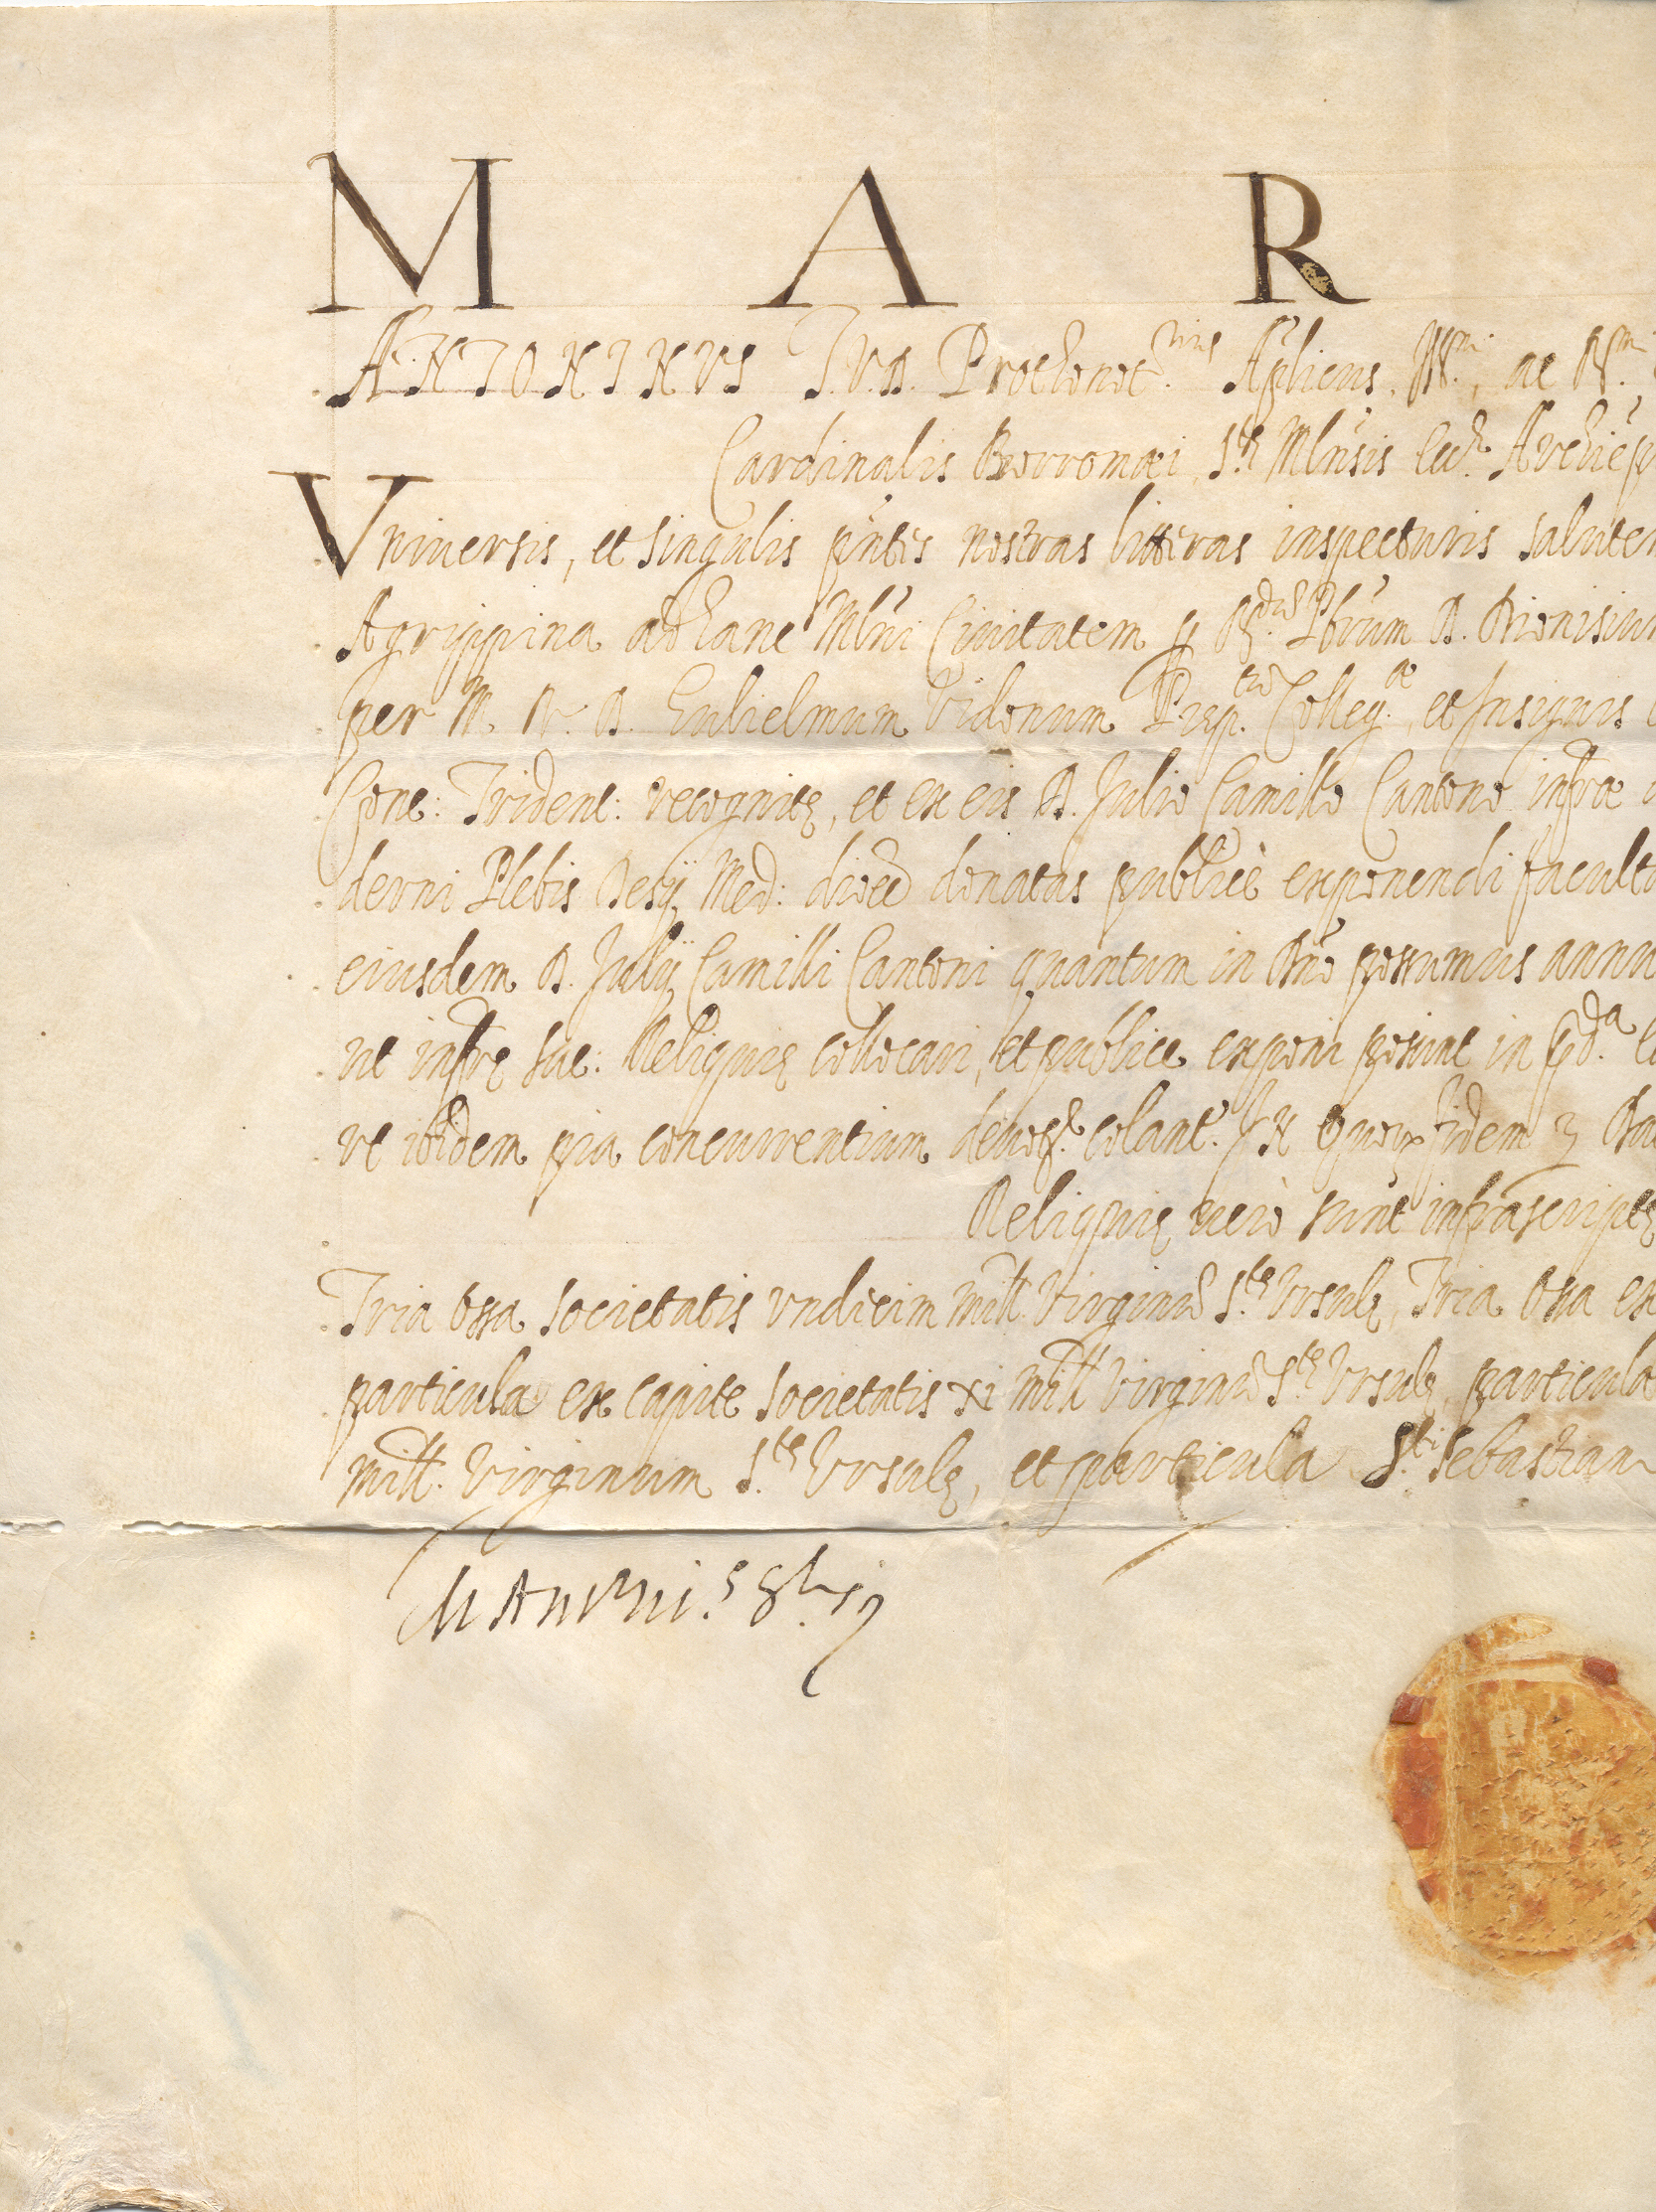 M A R
ANTONINVS I.V.D. Prothonot.rius Apl̃icus. Ill.mi, ac R.mi
Cardinalis Borromæi, S.tæ Mlñsis Ecc.
Vniuersis, et singulis pñtes nostras litteras inspecturis salutem
Agrippina ad hanc Mlñi Ciuitatem Pbrum D. Dionisium
per M. R. D. Gulielmum Vidonum Colleg.æ, et Insignis
Conc: Trident: recognitę, et ex eis D. Julio Camillo Cantono infræ
derni Plebis Desij Med: dioec donatas publicè exponendi faculta
eiusdem D. Julij Camilli Cantoni quantum in Dño possumus annu
ut infrę sac: Reliquię collocari, et publice exponi possint in p̃d.a
vt ibidem pia concurrentium colant. In Quor fidem
Reliquię verò sunt infrascriptę
Tria ossa societatis vndicim mill. Virginũ S.tę Vrsulę, Tria ossa ex
particula ex capite societatis xi mill Virginũ S.tę Vrsulę, particula
mill. Virginum S.tę Vrsulę, et particula S.ti Sebastian